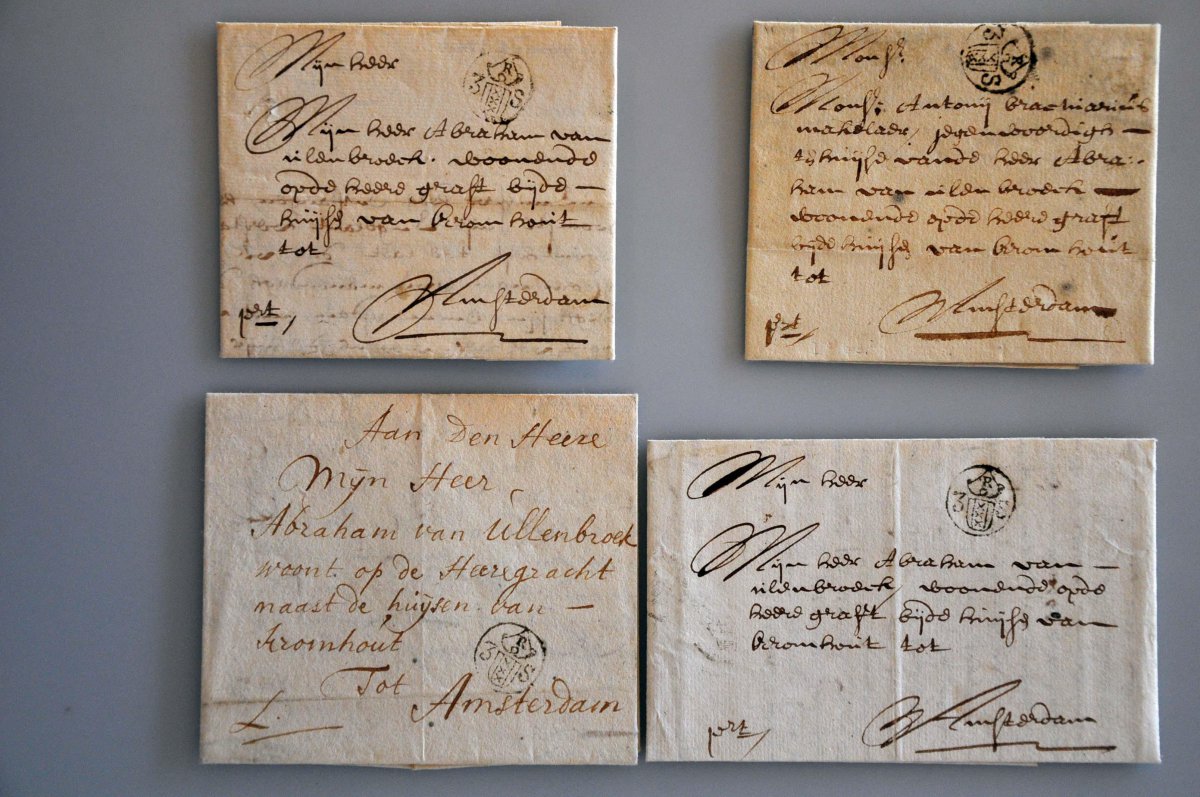 Mijn heer
3 S
Mijn heer Abraham van
uilenbroeck. woonende
opde heere graft bijde —
huijse van kromhout
tot
Amsterdam
prt
Mons:r
3 S
Mons:r Antonij
makelaer, jegenwoordigh —
huijse vande heer Abra:
ham van uilen broeck —
woonende opde heere graft
bijde huijse van kromhout
tot
Amsterdam
prt
Aan Den Heere
Mijn Heer,
Abraham van Ullenbroek
woont op de Heeregracht
naast de huijsen van —
Kromhout
3 S
Tot
Amsterdam
L.
Mijn heer
3 S
Mijn heer Abraham van —
uilenbroeck woonende opde
heere graft bijde huijse van
kromhout tot
Amsterdam
prt